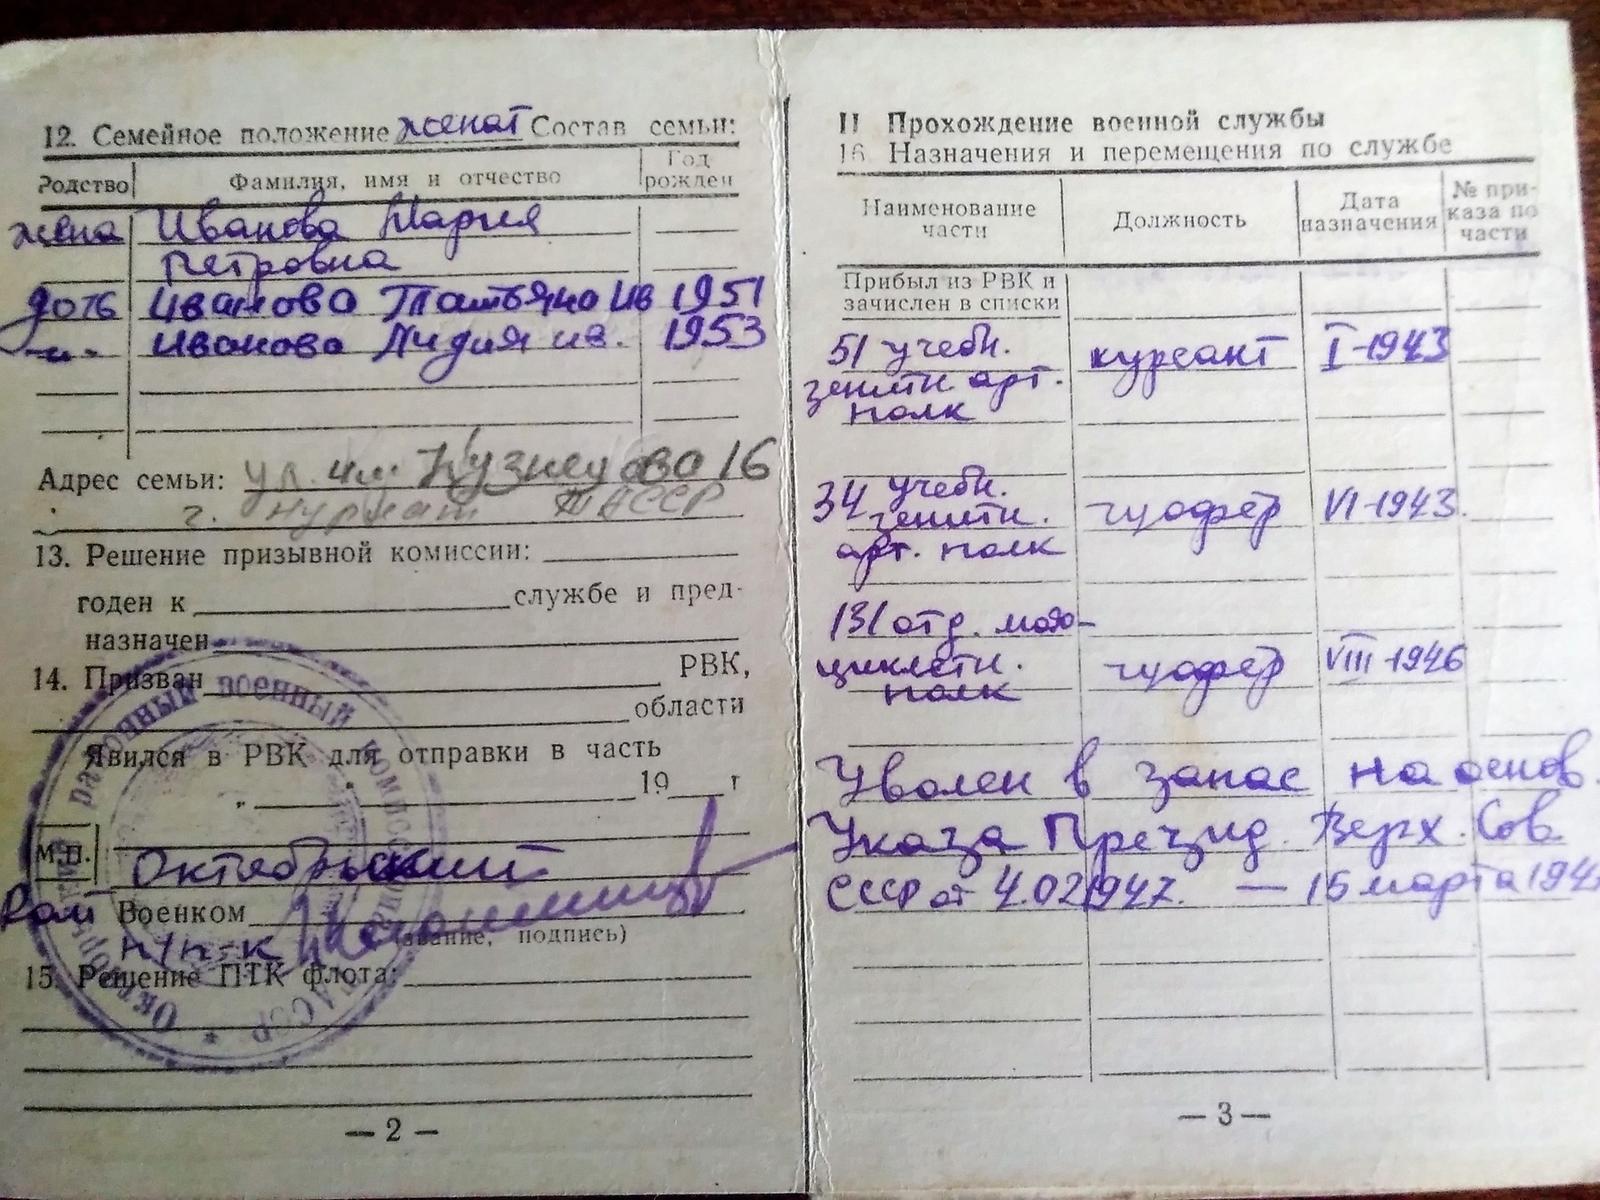 12. Семейное положение женат Состав семьи:
Родство Фамилия, имя и отчество Год рожден
жена Иванова Мария
Петровна
дочь Иванова Татьяна Ив 1951
-"- Иванова Лидия ив. 1953
Адрес семьи: ул. им. Кузнецова 16
г. Нурлат ТАССР
13. Решение призывной комиссии:
годен к службе и пред-
назначен
14. Призван РВК,
области
Явился в РВК для отправки в часть
" " 19 г
М.П.
Октябрьский
Рай Военком
п/п-к (звание, подпись)
15. Решение ПТК флота:
районный военный комиссариат
ТАССР
— 2 —
II Прохождение военной службы
16. Назначения и перемещения по службе
Наименование части Должность Дата назначения № при-каза по части
Прибыл из РВК и
зачислен в списки
51 учебн. курсант I-1943
зенитн арт.
полк
34 учебн.
зенитн. шофер VI-1943.
арт. полк
131 отд. мото-
циклетн. шофер VIII-1946
полк
Уволен в запас на основ.
Указа Презид. Верх. Сов
СССР от 4.02 1947. — 15 марта 194
— 3 —